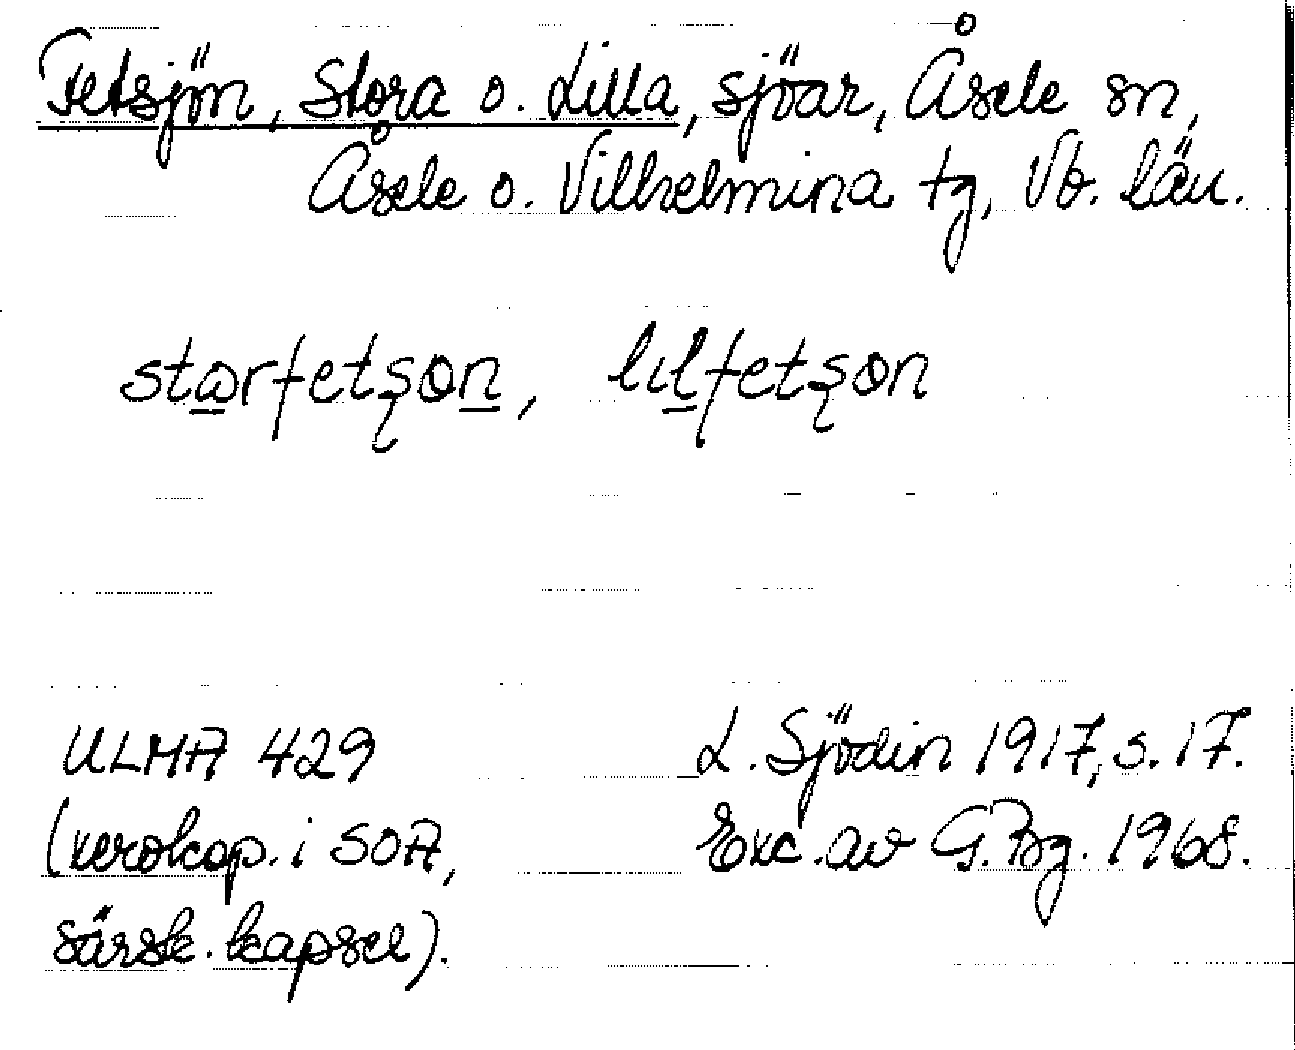 Fetsjön, Stora o. Lilla, sjöar, Åsele sn,
Åsele o. Vilhelmina tg, Vb. län.
starfetşon, lılfetşon
ULMA 429
(xerokop. i SOA,
särsk. kapsel).
L. Sjödin 1917, s. 17.
Exc. av G. Bg. 1968.